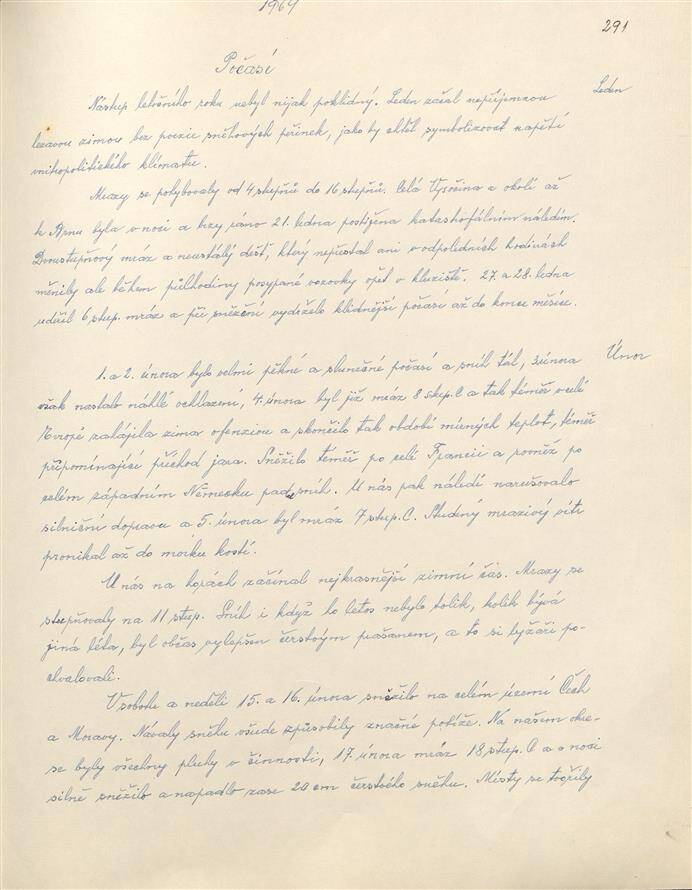 1969
291
Počasí
Leden
Nástup letošního roku nebyl nijak poklidný. Leden začal nepříjemnou
lezavou zimou bez poezie sněhových peřinek, jako by chtěl symbolizovat napětí
vnitropolitického klimatu.
Mrazy se pohybovaly od 4 stupňů do 16 stupňů. Celá Vysočina a okolí až
k Brnu byla v noci a brzy ráno 21. ledna postižena katastrofálním náledím.
Dvoustupňový mráz a neustálý déšť, který nepřestal ani v odpoledních hodinách
měnily ale během půlhodiny posypané vozovky opět v kluziště. 27. a 28. ledna
udeřil 6 stup. mráz a při sněžení vydrželo klidnější počasí až do konce měsíce.
Únor
1. a 2. února bylo velmi pěkné a slunečné počasí a sníh tál, 3. února
však nastalo náhlé ochlazení, 4. února byl již mráz 8 stup. C a tak téměř v celé
Evropě zahájila zima ofenzivu a skončilo tak období mírných teplot, téměř
připomínající příchod jara. Sněžilo téměř po celé Francii a rovněž po
celém západním Německu padal sníh. U nás pak náledí narušovalo
silniční dopravu a 5. února byl mráz 7 stup. C. Studený mrazivý vítr
pronikal až do morku kostí.
U nás na horách začínal nejkrasnější zimní čas. Mrazy se
stupňovaly na 11 stup. Sníh i když ho letos nebylo tolik, kolik bývá
jiná léta, byl občas vylepšen čerstvým prašanem, a to si lyžaři po-
chvalovali.
V sobotu a neděli 15. a 16. února sněžilo na celém území Čech
a Moravy. Návaly sněhu všude způsobily značné potíže. Na našem okre-
se byly všechny pluhy v činnosti, 17. února mráz 18 stup. C a v noci
silně sněžilo a napadlo zase 20 cm čerstvého sněhu. Místy se tvořily